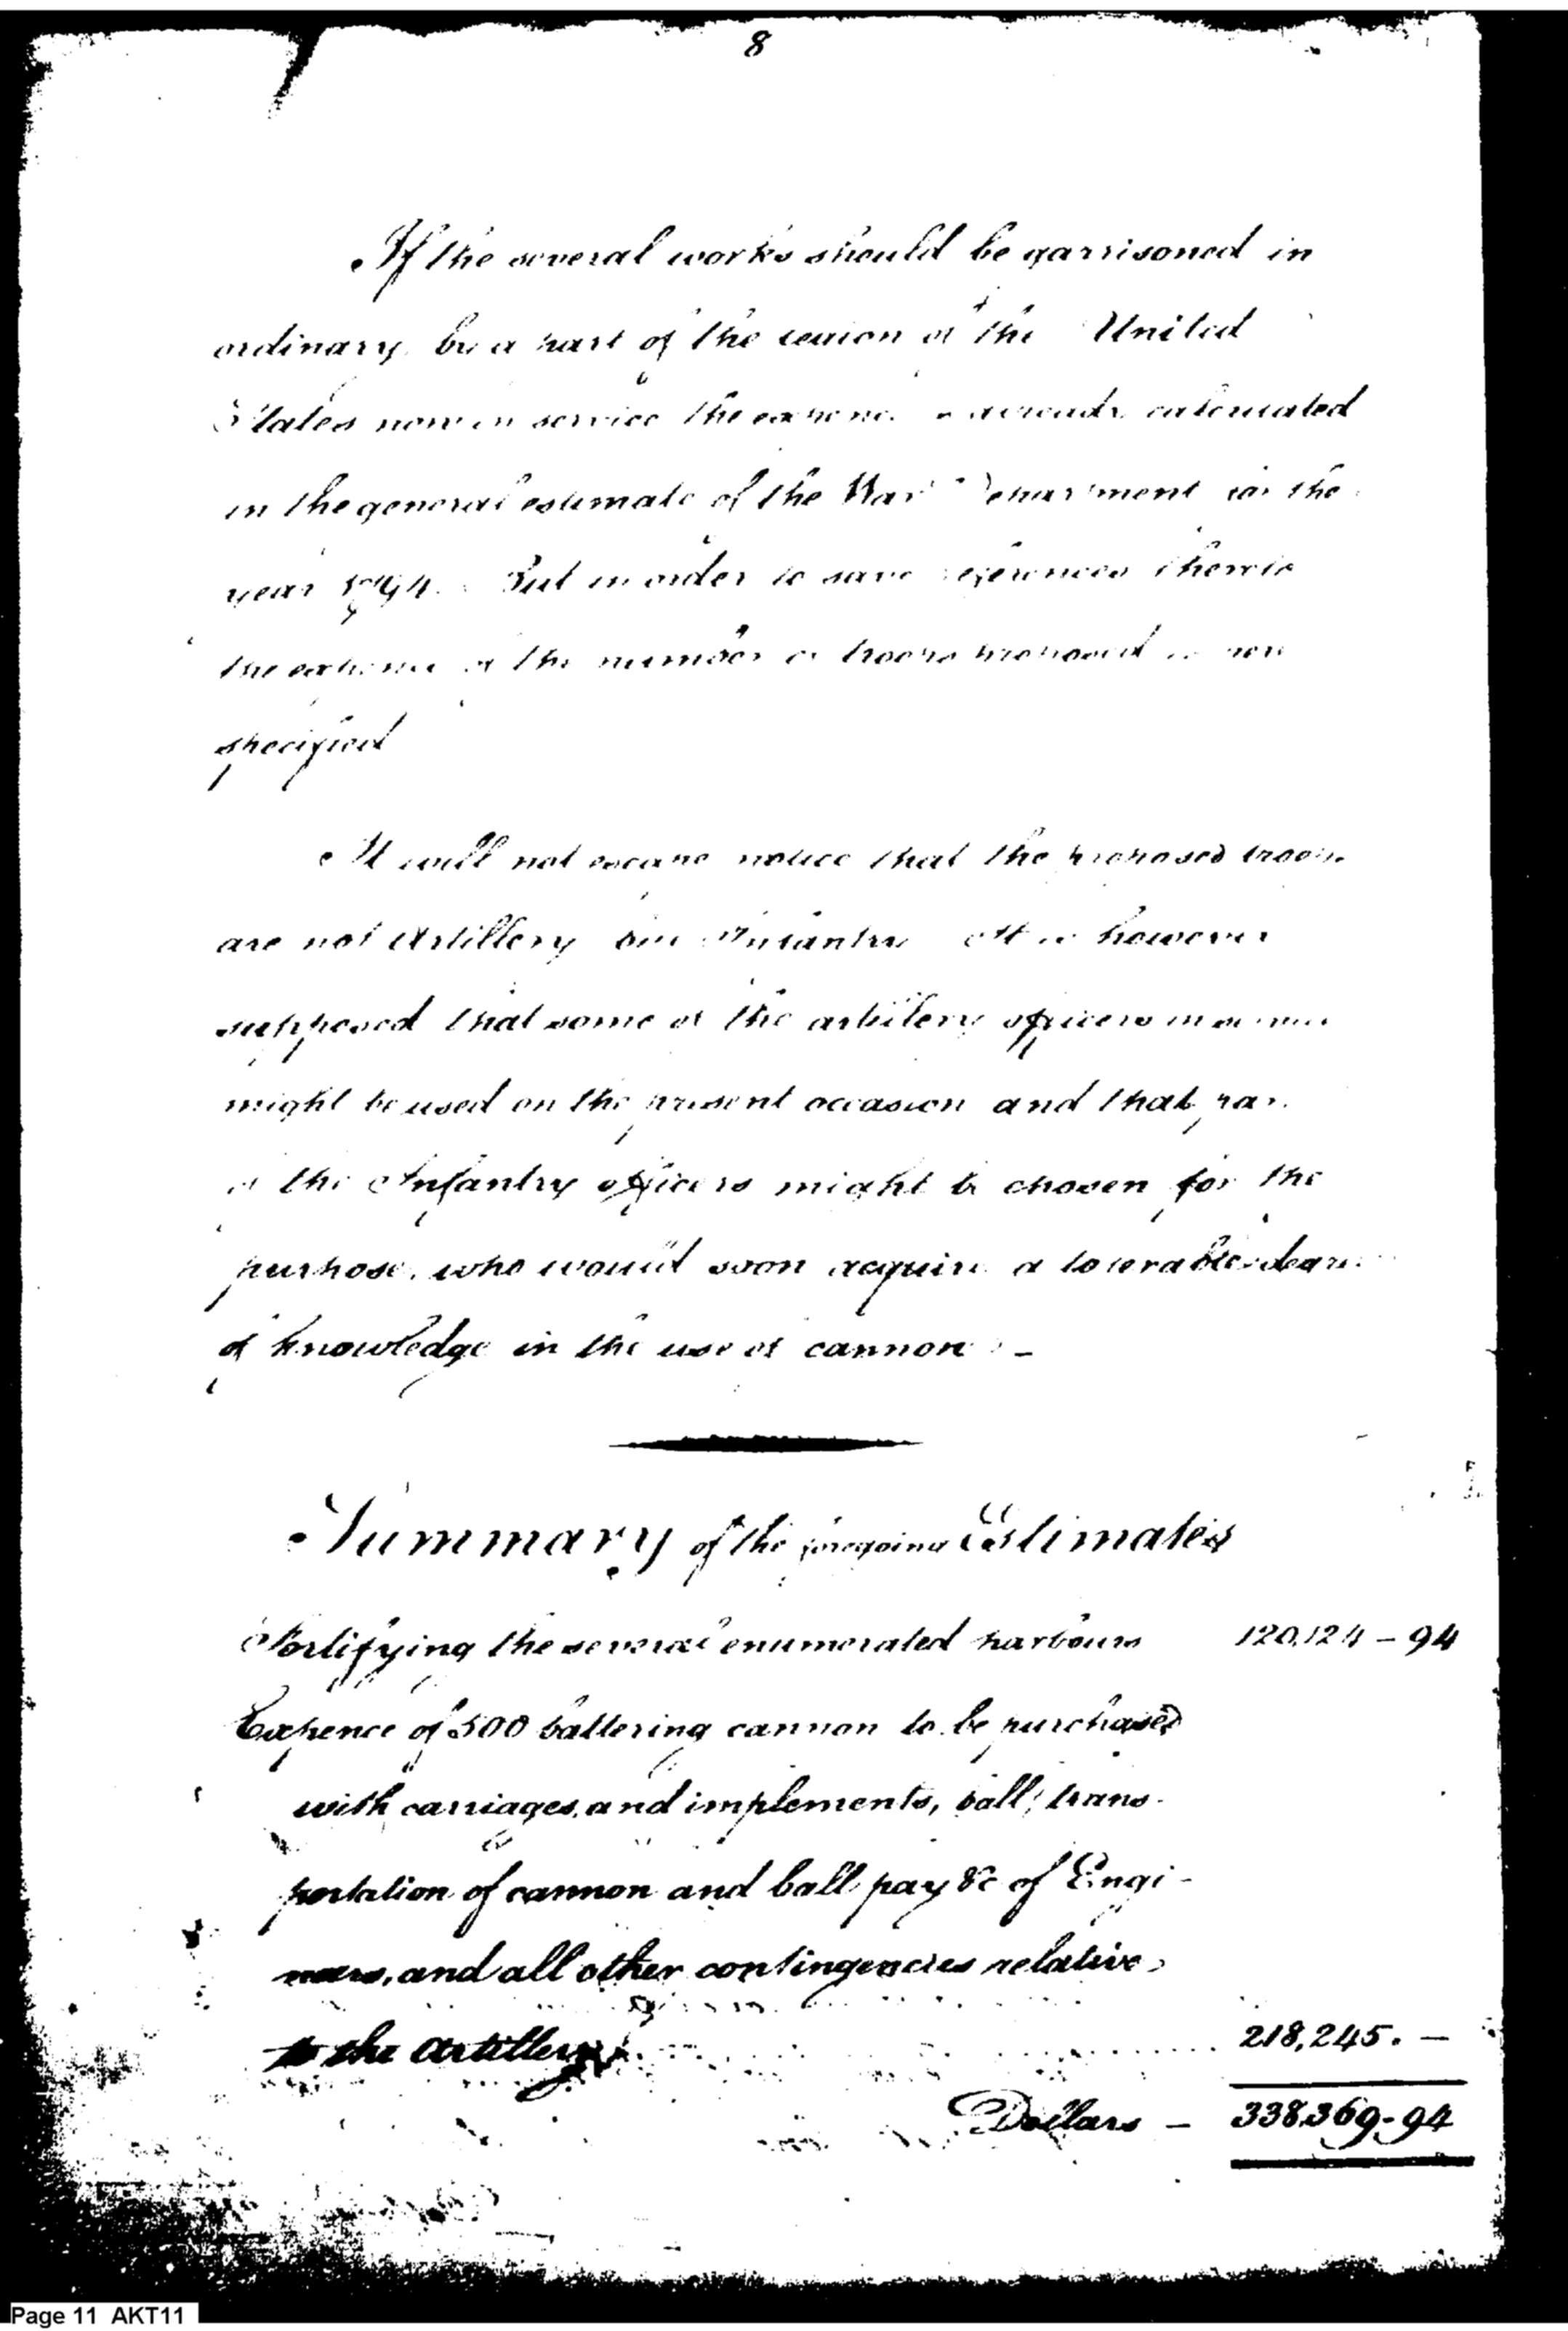 8
If the several works should be garrisoned in
ordinary by a part of the legion of the United
States now in service the expence is already calculated
in the general estimate of the War Department for the
year 1794. But in order to save references thereto
the expence of the number of troops proposed is now
specified
It will not escape notice that the proposed troops
are not Artillery but Infantry It is however
supposed that some of the artillery officers in
might be used on the present occasion and that part
of the Infantry officers might be chosen for the
purpose, who would soon acquire a tolerable degree
of knowledge in the use of cannon. —
Summary of the foregoing Estimates
Fortifying the several enumerated harbours 120,124 – 94
Expence of 500 battering cannon to be purchased
with carriages, and implements, ball, trans-
portation of cannon and ball pay &c of Engi-
neers, and all other contingencies relative
to the Artillery 218,245. —
Dollars – 338,369-94
Page 11 AKT11